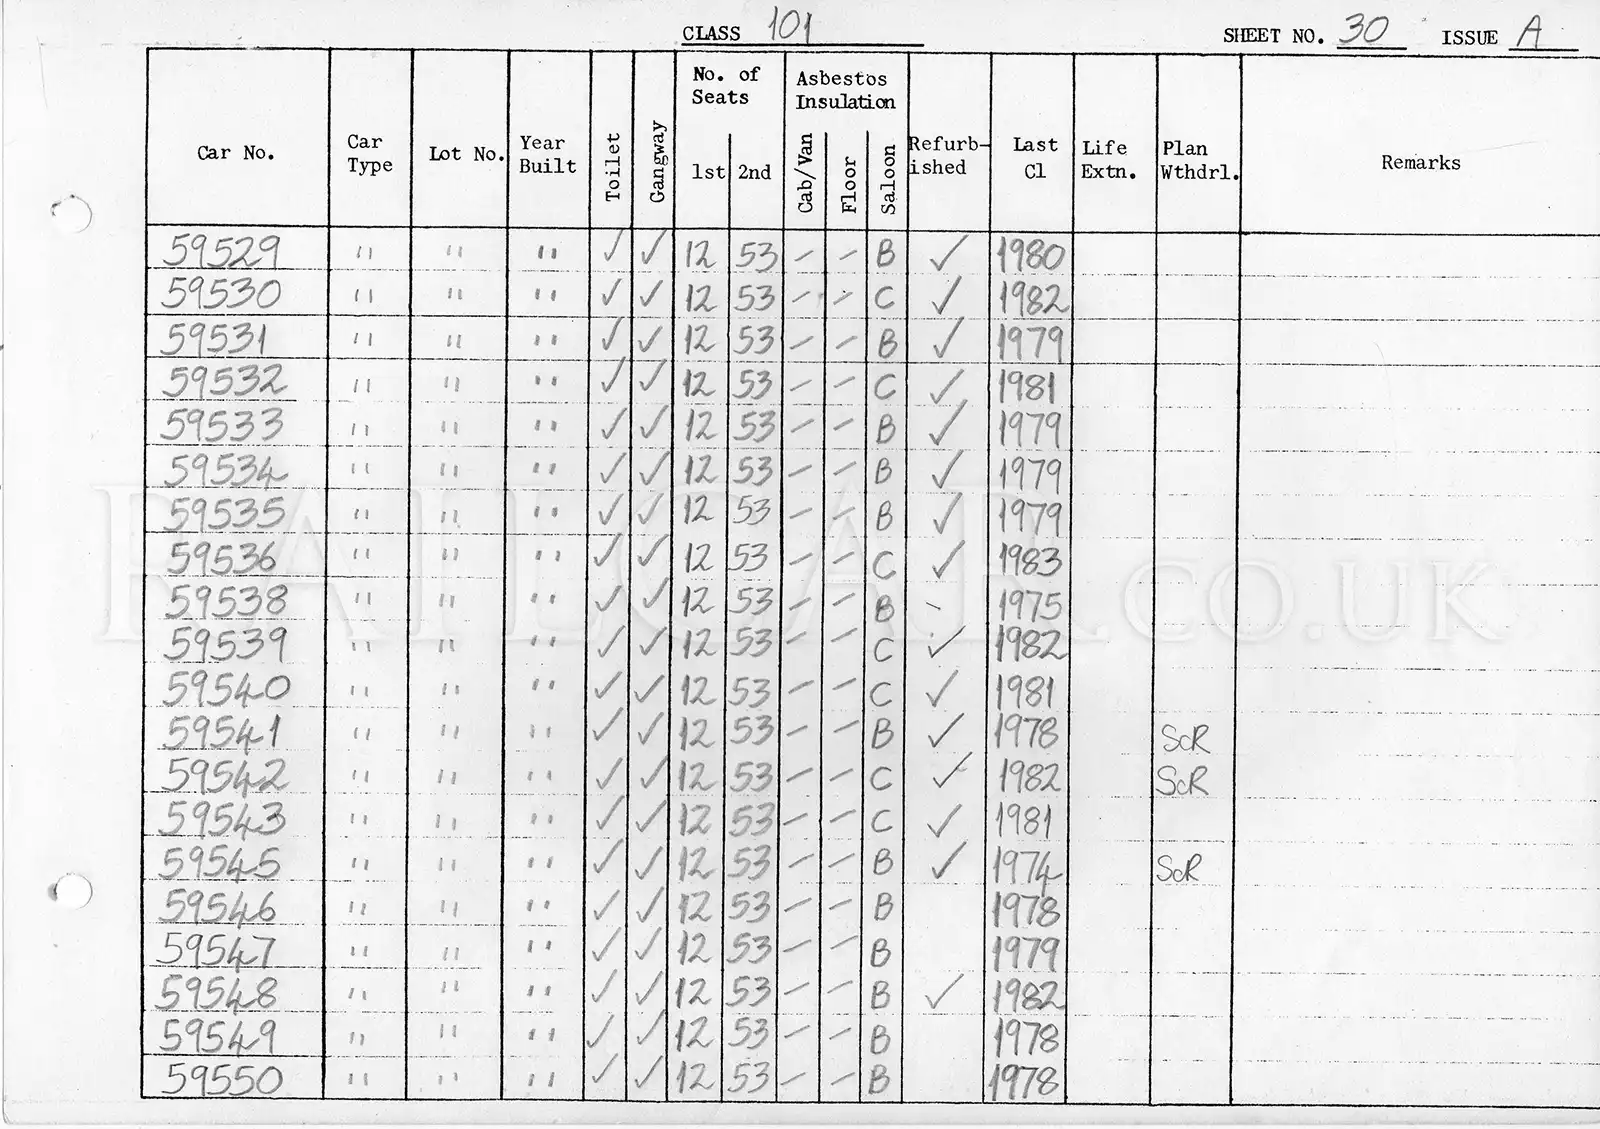 CLASS 101 SHEET NO. 30 ISSUE A
No. of Seats Asbestos Insulation
Car No. Car Type Lot No. Year Built Toilet Gangway 1st 2nd Cab/Van Floor Saloon Refurb-ished Last Cl Life Extn. Plan Wthdrl. Remarks
59529 " " " ✓ ✓ 12 53 – – B ✓ 1980
59530 " " " ✓ ✓ 12 53 – – C ✓ 1982
59531 " " " ✓ ✓ 12 53 – – B ✓ 1979
59532 " " " ✓ ✓ 12 53 – – C ✓ 1981
59533 " " " ✓ ✓ 12 53 – – B ✓ 1979
59534 " " " ✓ ✓ 12 53 – – B ✓ 1979
59535 " " " ✓ ✓ 12 53 – – B ✓ 1979
59536 " " " ✓ ✓ 12 53 – – C ✓ 1983
59538 " " " ✓ ✓ 12 53 – – B - 1975
59539 " " " ✓ ✓ 12 53 – – C ✓ 1982
59540 " " " ✓ ✓ 12 53 – – C ✓ 1981
59541 " " " ✓ ✓ 12 53 – – B ✓ 1978 ScR
59542 " " " ✓ ✓ 12 53 – – C ✓ 1982 ScR
59543 " " " ✓ ✓ 12 53 – – C ✓ 1981
59545 " " " ✓ ✓ 12 53 – – B ✓ 1974 ScR
59546 " " " ✓ ✓ 12 53 – – B 1978
59547 " " " ✓ ✓ 12 53 – – B 1979
59548 " " " ✓ ✓ 12 53 – – B ✓ 1982
59549 " " " ✓ ✓ 12 53 – – B 1978
59550 " " " ✓ ✓ 12 53 – – B 1978
RAILCAR.CO.UK